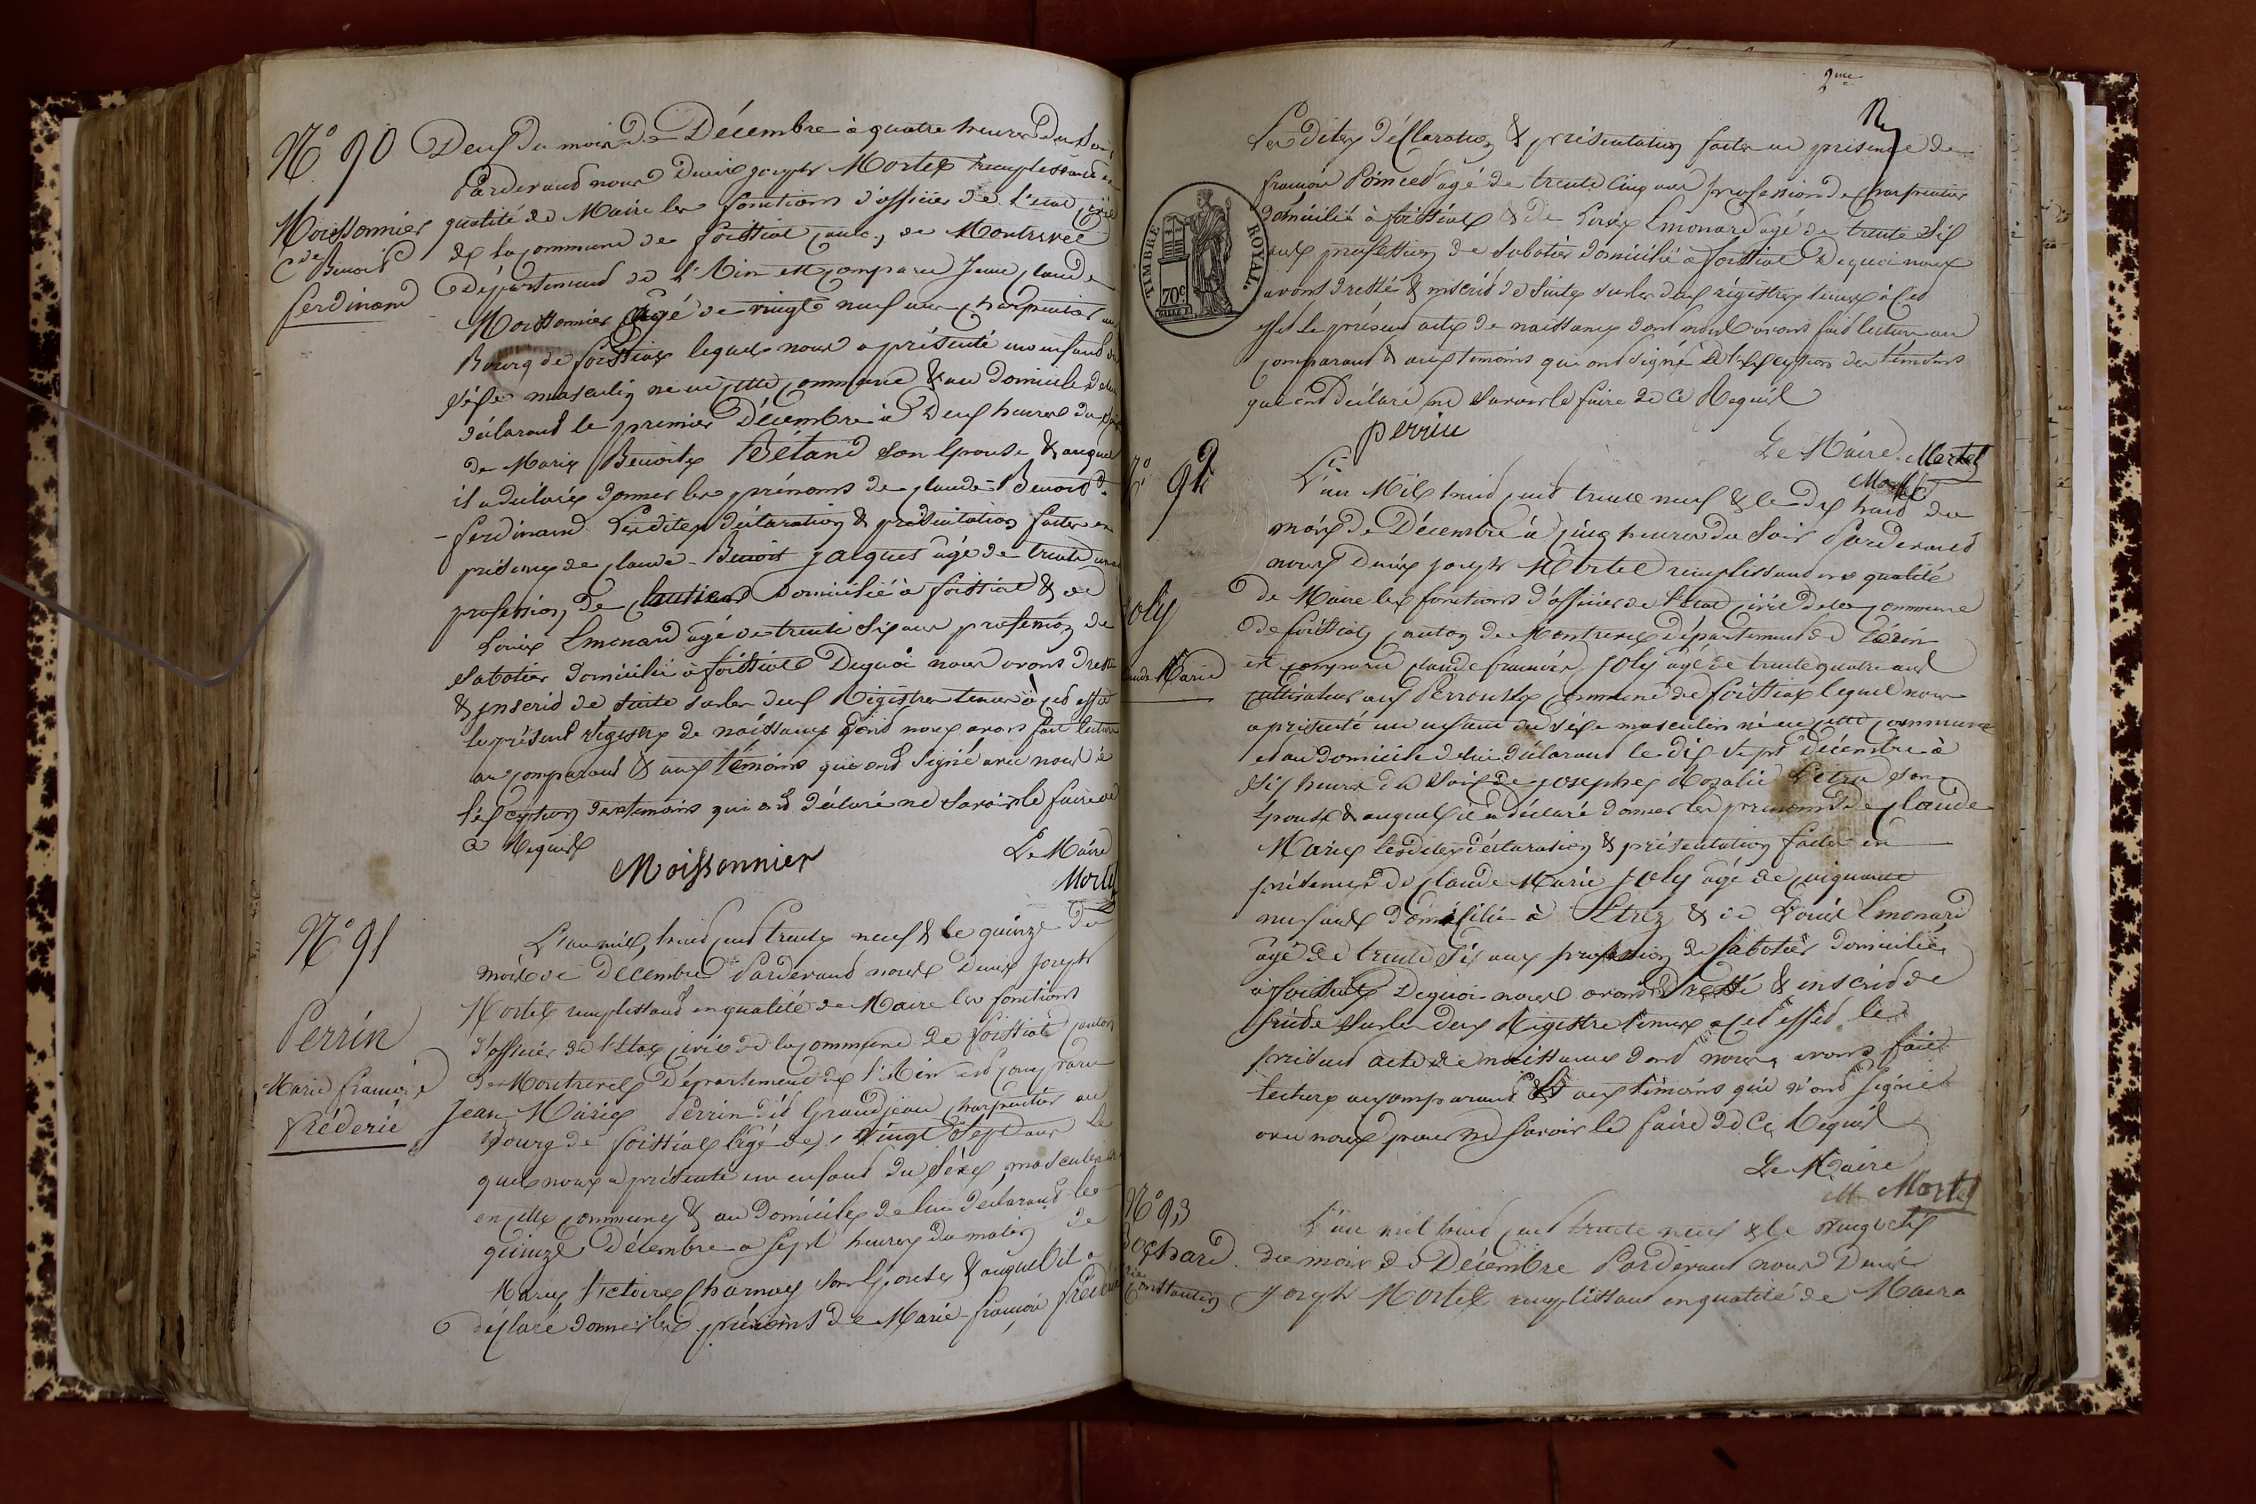 N° 90
Moissonnier
Cde Benoit
ferdinand
Deux du mois de Décembre à quatre heures du soir
Pardevant nous Denis joseph Mortel remplissant en
qualité de Maire les fonctions d'officier de l'etat civil
de la commune de foissiat canton de Montrevel
Département de l'Ain est comparu Jean claude
Moissonnier agé de vingt neuf ans charpentier au
Bourg de foissiat lequel nous a présenté un enfant du
séxe masculin né en cette commune & au domicile de lui
déclarant le premier Décembre à Deux heures du
de Marie Benoite Bétand son Epouse & auquel
il a déclaré donner les prénoms de claude-Benoit
-ferdinand Lesdites déclaration & présentation faites en
présence de claude-Benoit jacquet âgé de trente
profession de domicilié à foissiat & de
Louis Emonard agé de trente six ans profession de
sabotier domicilié à foissiat Dequoi nous avons dressé
& inscrit de suite sur les deux Registres tenus à cet effet
le présent registre de naissance dont nous avons fait lecture
au comparant & aux témoins qui ont signé avec nous à
l'éxception des temoins qui ont déclaré ne savoir le faire de
ce Requis
Moissonnier
Le Maire
Mortel
N° 91
Perrin
Marie françois
fréderic
L'an mil huit cent trente neuf & le quinze du
mois de Décembre Pardevant nous Denis joseph
Mortel remplissant en qualité de Maire les fonctions
d'officier de l'Etat civil de la commune de foissiat canton
de Montrevel Département de l'Ain est comparu
Jean-Marie Perrin dit Grandjean charpentier au
Bourg de foissiat âgé de vingt sept ans le
quel nous a présenté un enfant du séxe masculin
en cette commune & au domicile de lui déclarant le
quinze Décembre a sept heures du matin de
Marie Victoire Charnay son Epouse & auquel il a
déclaré donner les prénoms de Marie-françois fréderic
2me
Lesdites déclaration & présentation faites en présence de
françois Poincet agé de trente cinq ans profession de charpentier
domicilié à foissiat & de Louis Emonard agé de trente six
ans profession de sabotier domicilié à foissiat Dequoi nous
avons dressé & inscrit de suite sur les deux régistres tenus à cet
effet le présent acte de naissance dont nous avons fait lecture au
comparant & aux temoins qui ont signé à l'exception des témoins
qui ont déclaré ne savoir le faire de ce Requis
TIMBRE ROYAL
70c
perrin
Le Maire Mortel
N° 92
joly
claude Marie
L'an Mil huit cent trente neuf & le dix huit du
mois de Décembre à cinq heures du soir Pardevant
nous Denis joseph Mortel remplissant en qualité
de Maire les fonctions d'officier de l'etat civil de la commune
de foissiat canton de Montrevel Département de l'ain
est comparu claude françois joly agé de trente quatre ans
cultivateur aux Perroux commune de foissiat lequel nous
a présenté un enfant du séxe masculin né en cette commune
et au domicile de lui déclarant le dix sept Décembre à
six heures du soir de josephe Rozalie son
épouse & auquel il a déclaré donner les prénoms de claude
Marie lesdites déclaration & présentation faites en
présence de claude Marie joly agé de cinquante
neuf ans domicilié à Etrez & de Louis Emonard
agé de trente six ans profession de sabotier domicilié
a foissiat Dequoi nous avons dressé & inscrit de
suite sur les deux Registre tenus a cet effet le
présent acte de naissance dont nous avons fait
lecture au comparant & aux témoins qui n'ont signé
avec nous pour ne savoir le faire de ce Requis
Le Maire
Mortel
N° 93
Bochard
Constantin
L'an mil huit cent trente neuf & le vingt
du mois de Décembre Pardevant nous Denis
Joseph Mortel remplissant en qualité de Maire